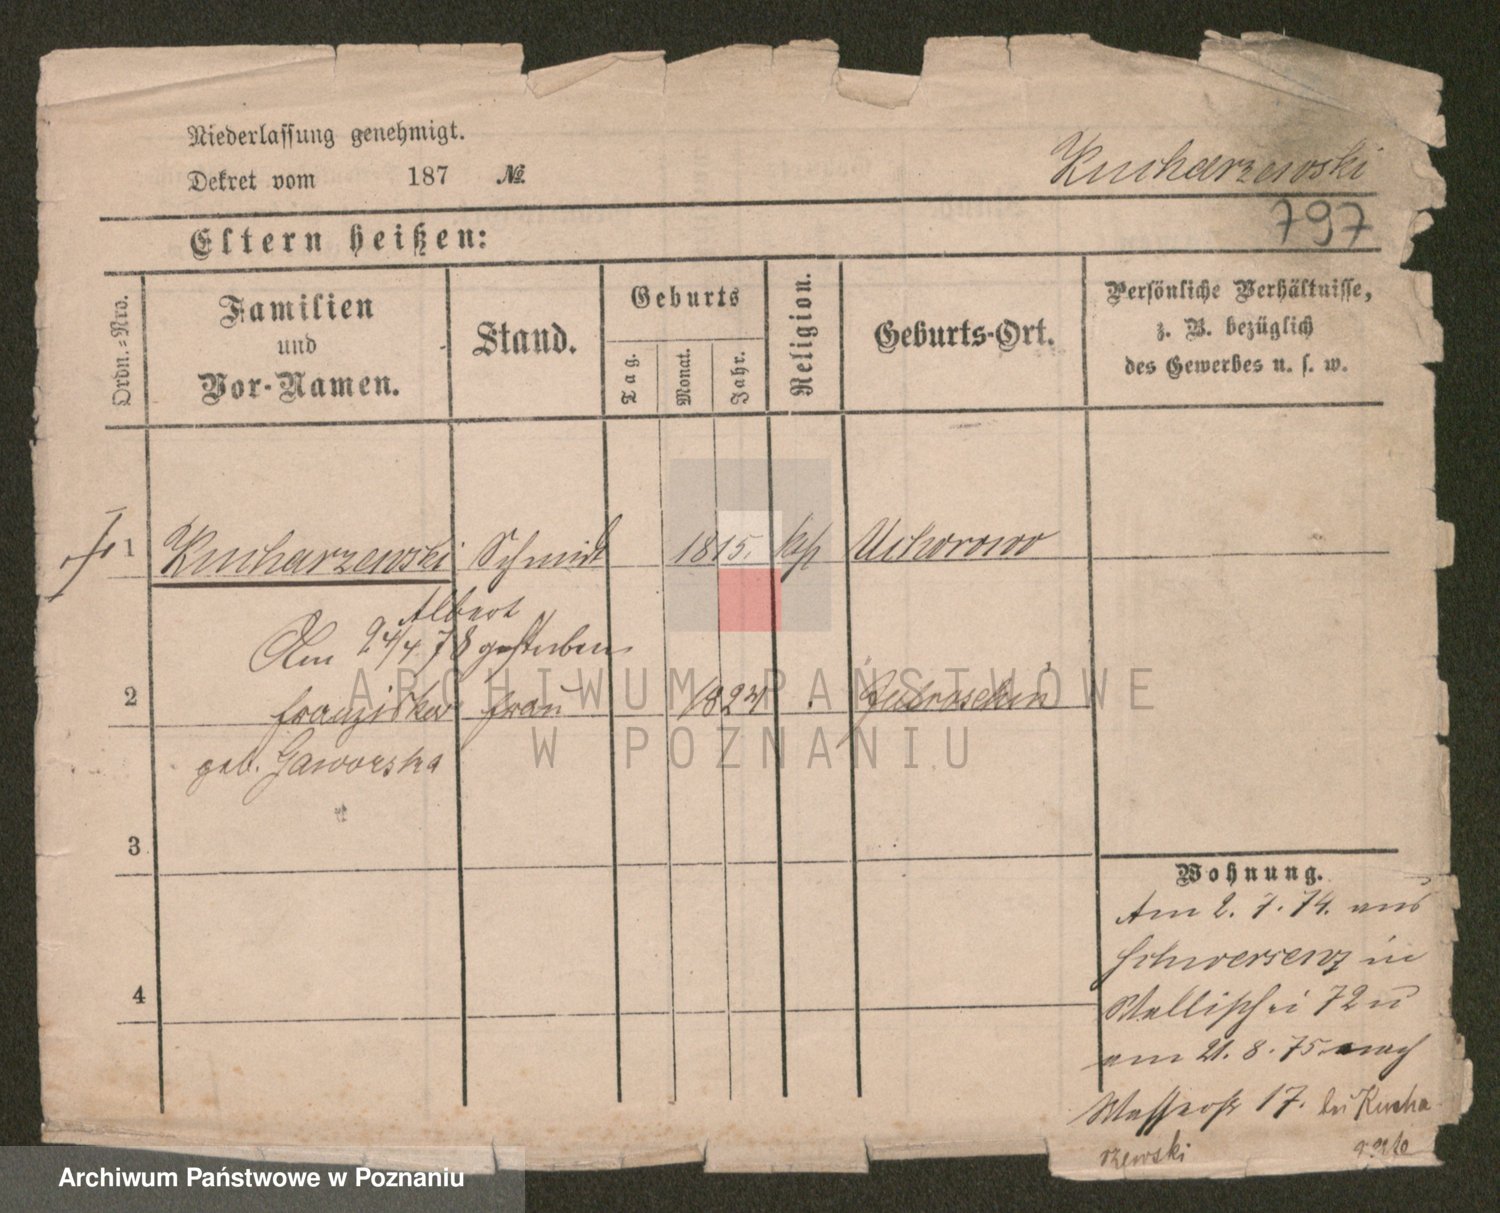 Niederlassung genehmigt.
Dekret vom 187 №
Kucharzewski
797
Eltern heißen:
Ordn.-Nro.
Familien
und
Vor-Namen.
Stand.
Geburts
Tag.
Monat.
Jahr.
Religion.
Geburts-Ort.
Persönliche Verhältnisse,
z. B. bezüglich
des Gewerbes u. s. w.
1 Kucharzewski Schmidt 1815. kth Uchorowo
Albert
Am 24/4 78 gestorben
2 Franziska Frau
geb. Gaworska
3
4
Wohnung.
Am 2. 7. 74. aus
Schwersenz in
Wallischei 72 u
am 21. 8. 75 nach
Wasserstr 17. bei Kucha
rzewski
ARCHIWUM PAŃSTWOWE
W POZNANIU
Archiwum Państwowe w Poznaniu